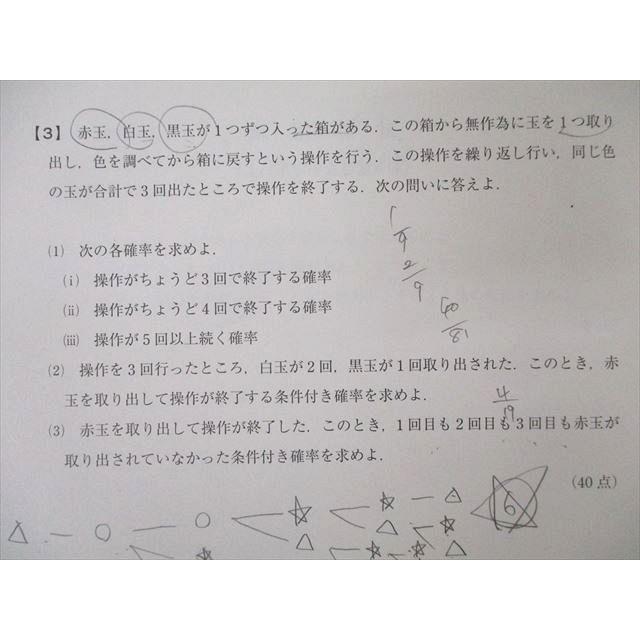 【3】 赤玉，白玉，黒玉が1つずつ入った箱がある．この箱から無作為に玉を1つ取り
出し，色を調べてから箱に戻すという操作を行う．この操作を繰り返し行い，同じ色
の玉が合計で3回出たところで操作を終了する．次の問いに答えよ．
(1) 次の各確率を求めよ．
(i) 操作がちょうど3回で終了する確率
1/9
(ii) 操作がちょうど4回で終了する確率
2/9
(iii) 操作が5回以上続く確率
(2) 操作を3回行ったところ，白玉が2回，黒玉が1回取り出された．このとき，赤
玉を取り出して操作が終了する条件付き確率を求めよ．
(3) 赤玉を取り出して操作が終了した．このとき，1回目も2回目も3回目も赤玉が
取り出されていなかった条件付き確率を求めよ．
(40点)
6